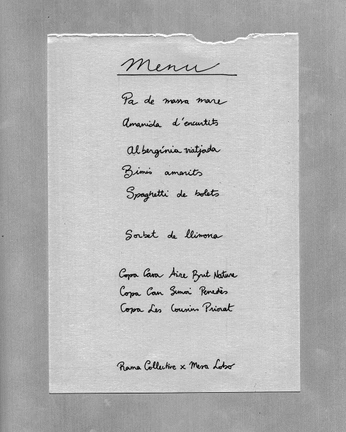 Menu
Pa de massa mare
Amanida d'encurtits
Albergínia viatjada
Bimis amarits
Spaghetti de bolets
Sorbet de llimona
Copa Cava Aire Brut Nature
Copa Can Sumoi Penedès
Copa Les Cousins Priorat
Rama Collective x Mesa Lobo